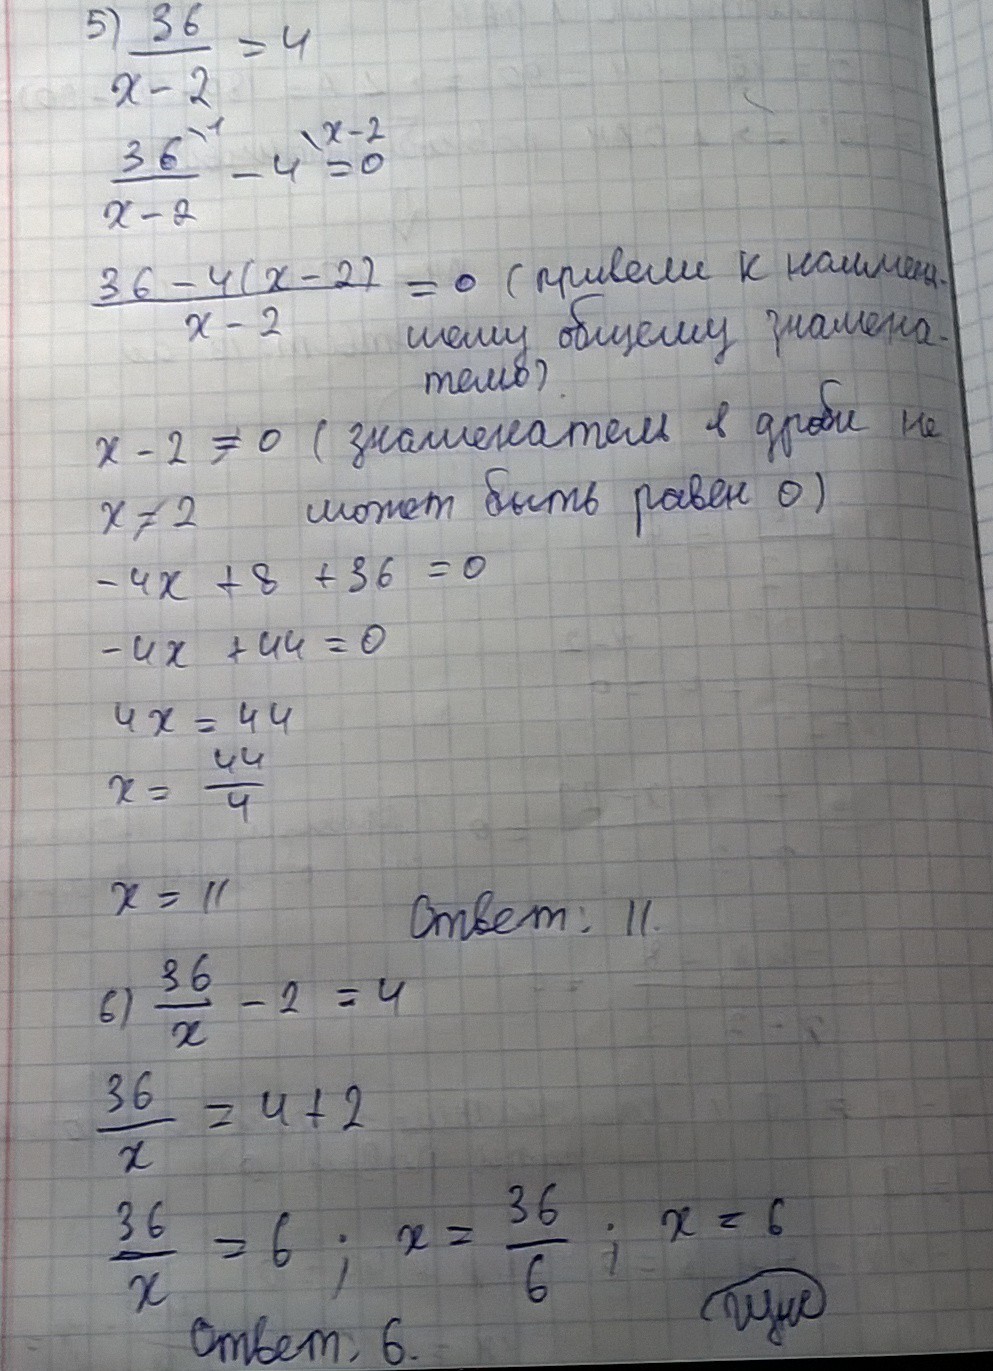 5) 36/(x-2) = 4
36\1/(x-2) - 4\x-2 = 0
(36-4(x-2))/(x-2) = 0 (привели к наимень-
шему общему знамена-
телю).
x-2≠0 (знаменатель в дроби не
x≠2 может быть равен 0)
-4x +8 +36 =0
-4x +44=0
4x=44
x= 44/4
x=11 Ответ: 11.
6) 36/x -2 =4
36/x =4+2
36/x =6; x= 36/6; x=6
Ответ: 6.